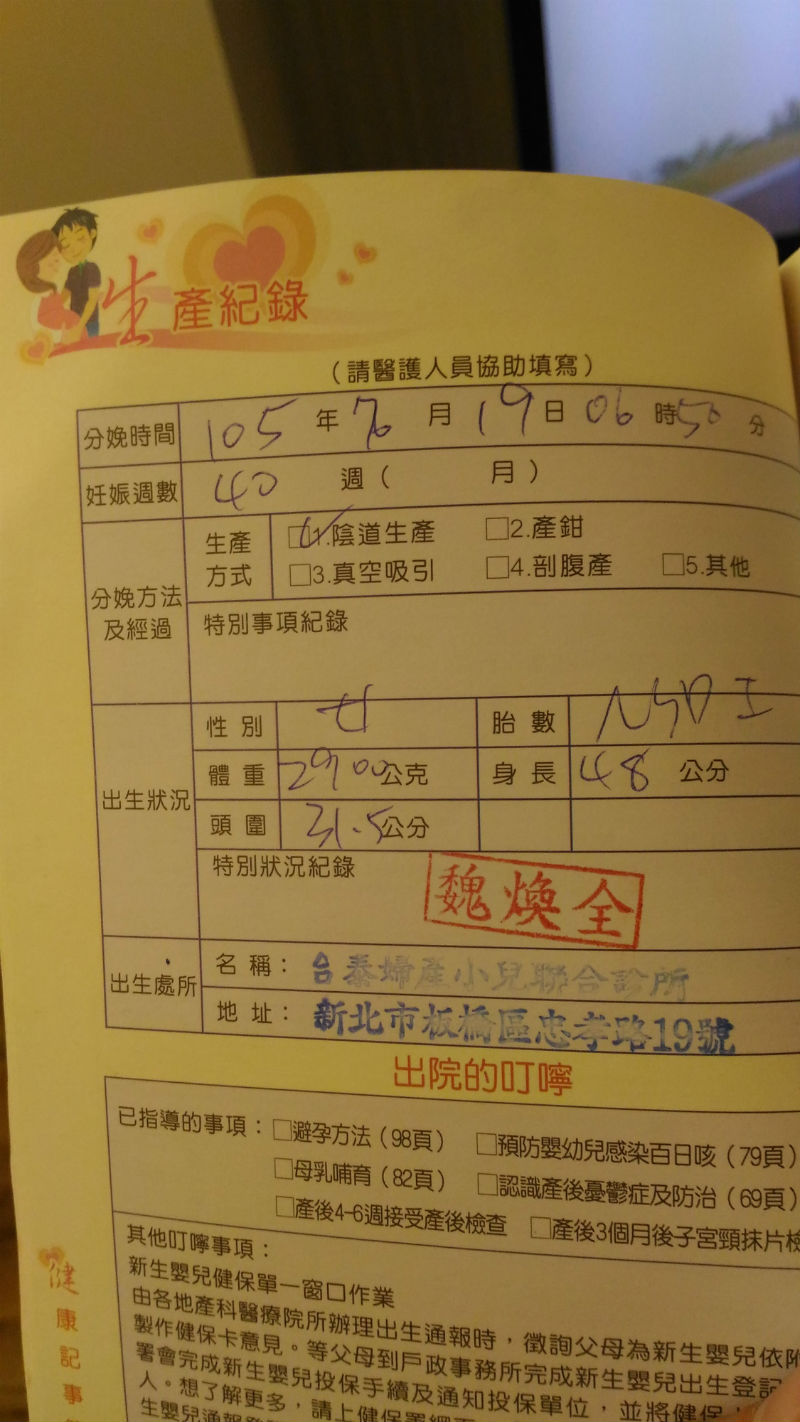 生產紀錄
（請醫護人員協助填寫）
分娩時間 105 年 月 19 日 06 時 50 分
妊娠週數 40 週（ 月）
分娩方法及經過 生產方式 ☑1.陰道生產 □2.產鉗
□3.真空吸引 □4.剖腹產 □5.其他
特別事項紀錄
出生狀況 性別 女 胎數
體重 2900公克 身長 48 公分
頭圍 31.5公分
特別狀況紀錄
魏煥全
出生處所 名稱：台泰婦產小兒聯合診所
地址：新北市板橋區忠孝路19號
出院的叮嚀
已指導的事項：□避孕方法（98頁） □預防嬰幼兒感染百日咳（79頁）
□母乳哺育（82頁） □認識產後憂鬱症及防治（69頁）
□產後4-6週接受產後檢查 □產後3個月後子宮頸抹片檢
其他叮嚀事項：
新生嬰兒健保單一窗口作業
由各地產科醫療院所辦理出生通報時，徵詢父母為新生嬰兒依附
製作健保卡意見。等父母到戶政事務所完成新生嬰兒出生登記
署會完成新生嬰兒投保手續及通知投保單位，並將健保
人。想了解更多，請上健保署網
生嬰兒通報
健康記事